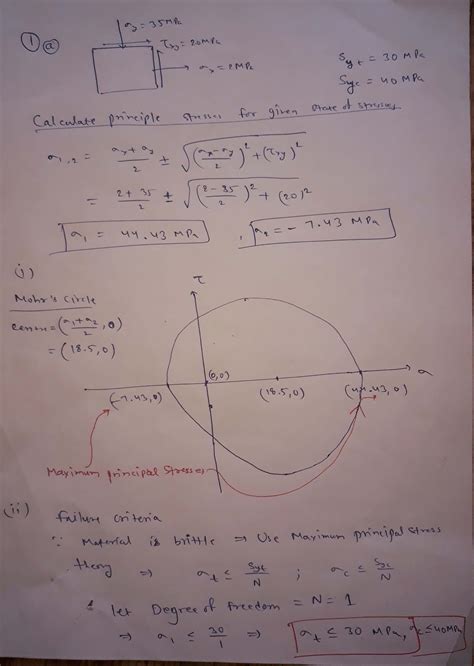 ① ⓐ
σy = 35MPa
τxy = 20MPa
σx = 2MPa
Syt = 30 MPa
Syc = 40 MPa
Calculate principle stresses for given state of stresses
σ1,2 = (σx+σy)/2 ± √(((σx-σy)/2)² + (τxy)²)
= (2+35)/2 ± √(((2-35)/2)² + (20)²)
σ1 = 44.43 MPa , σ2 = -7.43 MPa
(i)
Mohr's Circle
τ
centre = ((σ1+σ2)/2, 0)
= (18.5,0)
(0,0)
σ
(-7.43,0) (18.5,0) (44.43,0)
Maximum principal Stresses
(ii) Failure criteria
∵ Material is brittle ⇒ Use Maximum principal stress
theory ⇒ σt ≤ Syt/N ; σc ≤ Syc/N
let Degree of freedom = N = 1
⇒ σ1 ≤ 30/1 ⇒ σt ≤ 30 MPa, σc ≤ 40MPa